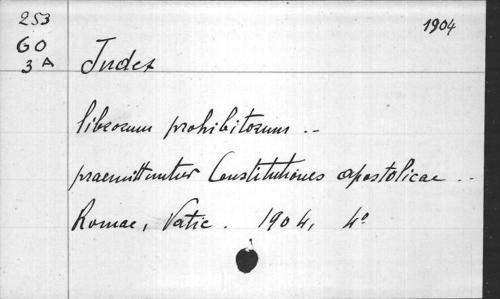 253
1904
GO
3A
Index
librorum prohibitorum ..
praemittuntur Constitutiones apostolicae ..
Romae, Vatic. 1904, 4°